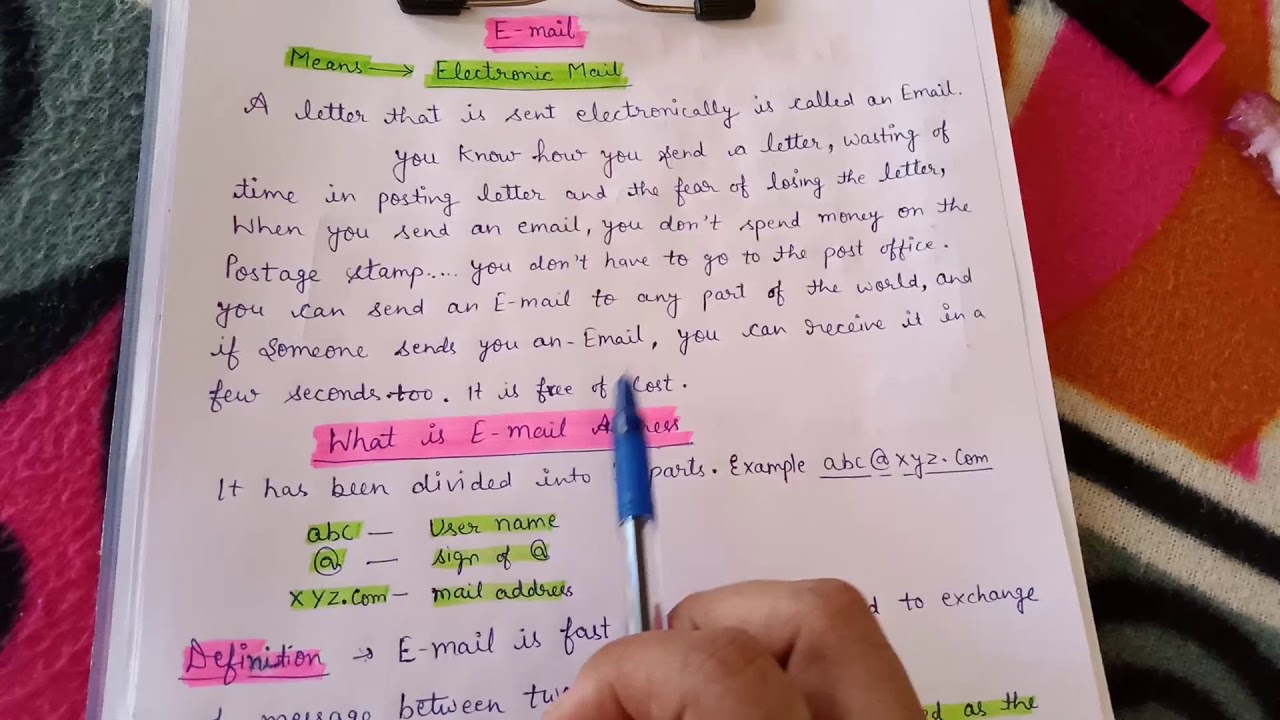 E-mail
Means → Electronic Mail
A letter that is sent electronically is called an Email.
you know how you send a letter, wasting of
time in posting letter and the fear of losing the letter,
When you send an email, you don't spend money on the
Postage stamp.... you don't have to go to the post office.
you can send an E-mail to any part of the world, and
if Someone sends you an-Email, you can receive it in a
few seconds too. It is free of Cost.
What is E-mail Address
It has been divided into parts. Example abc@xyz.Com
abc — User name
@ — sign of @
xyz.Com — mail address
Definition → E-mail is fast to exchange
message between as the